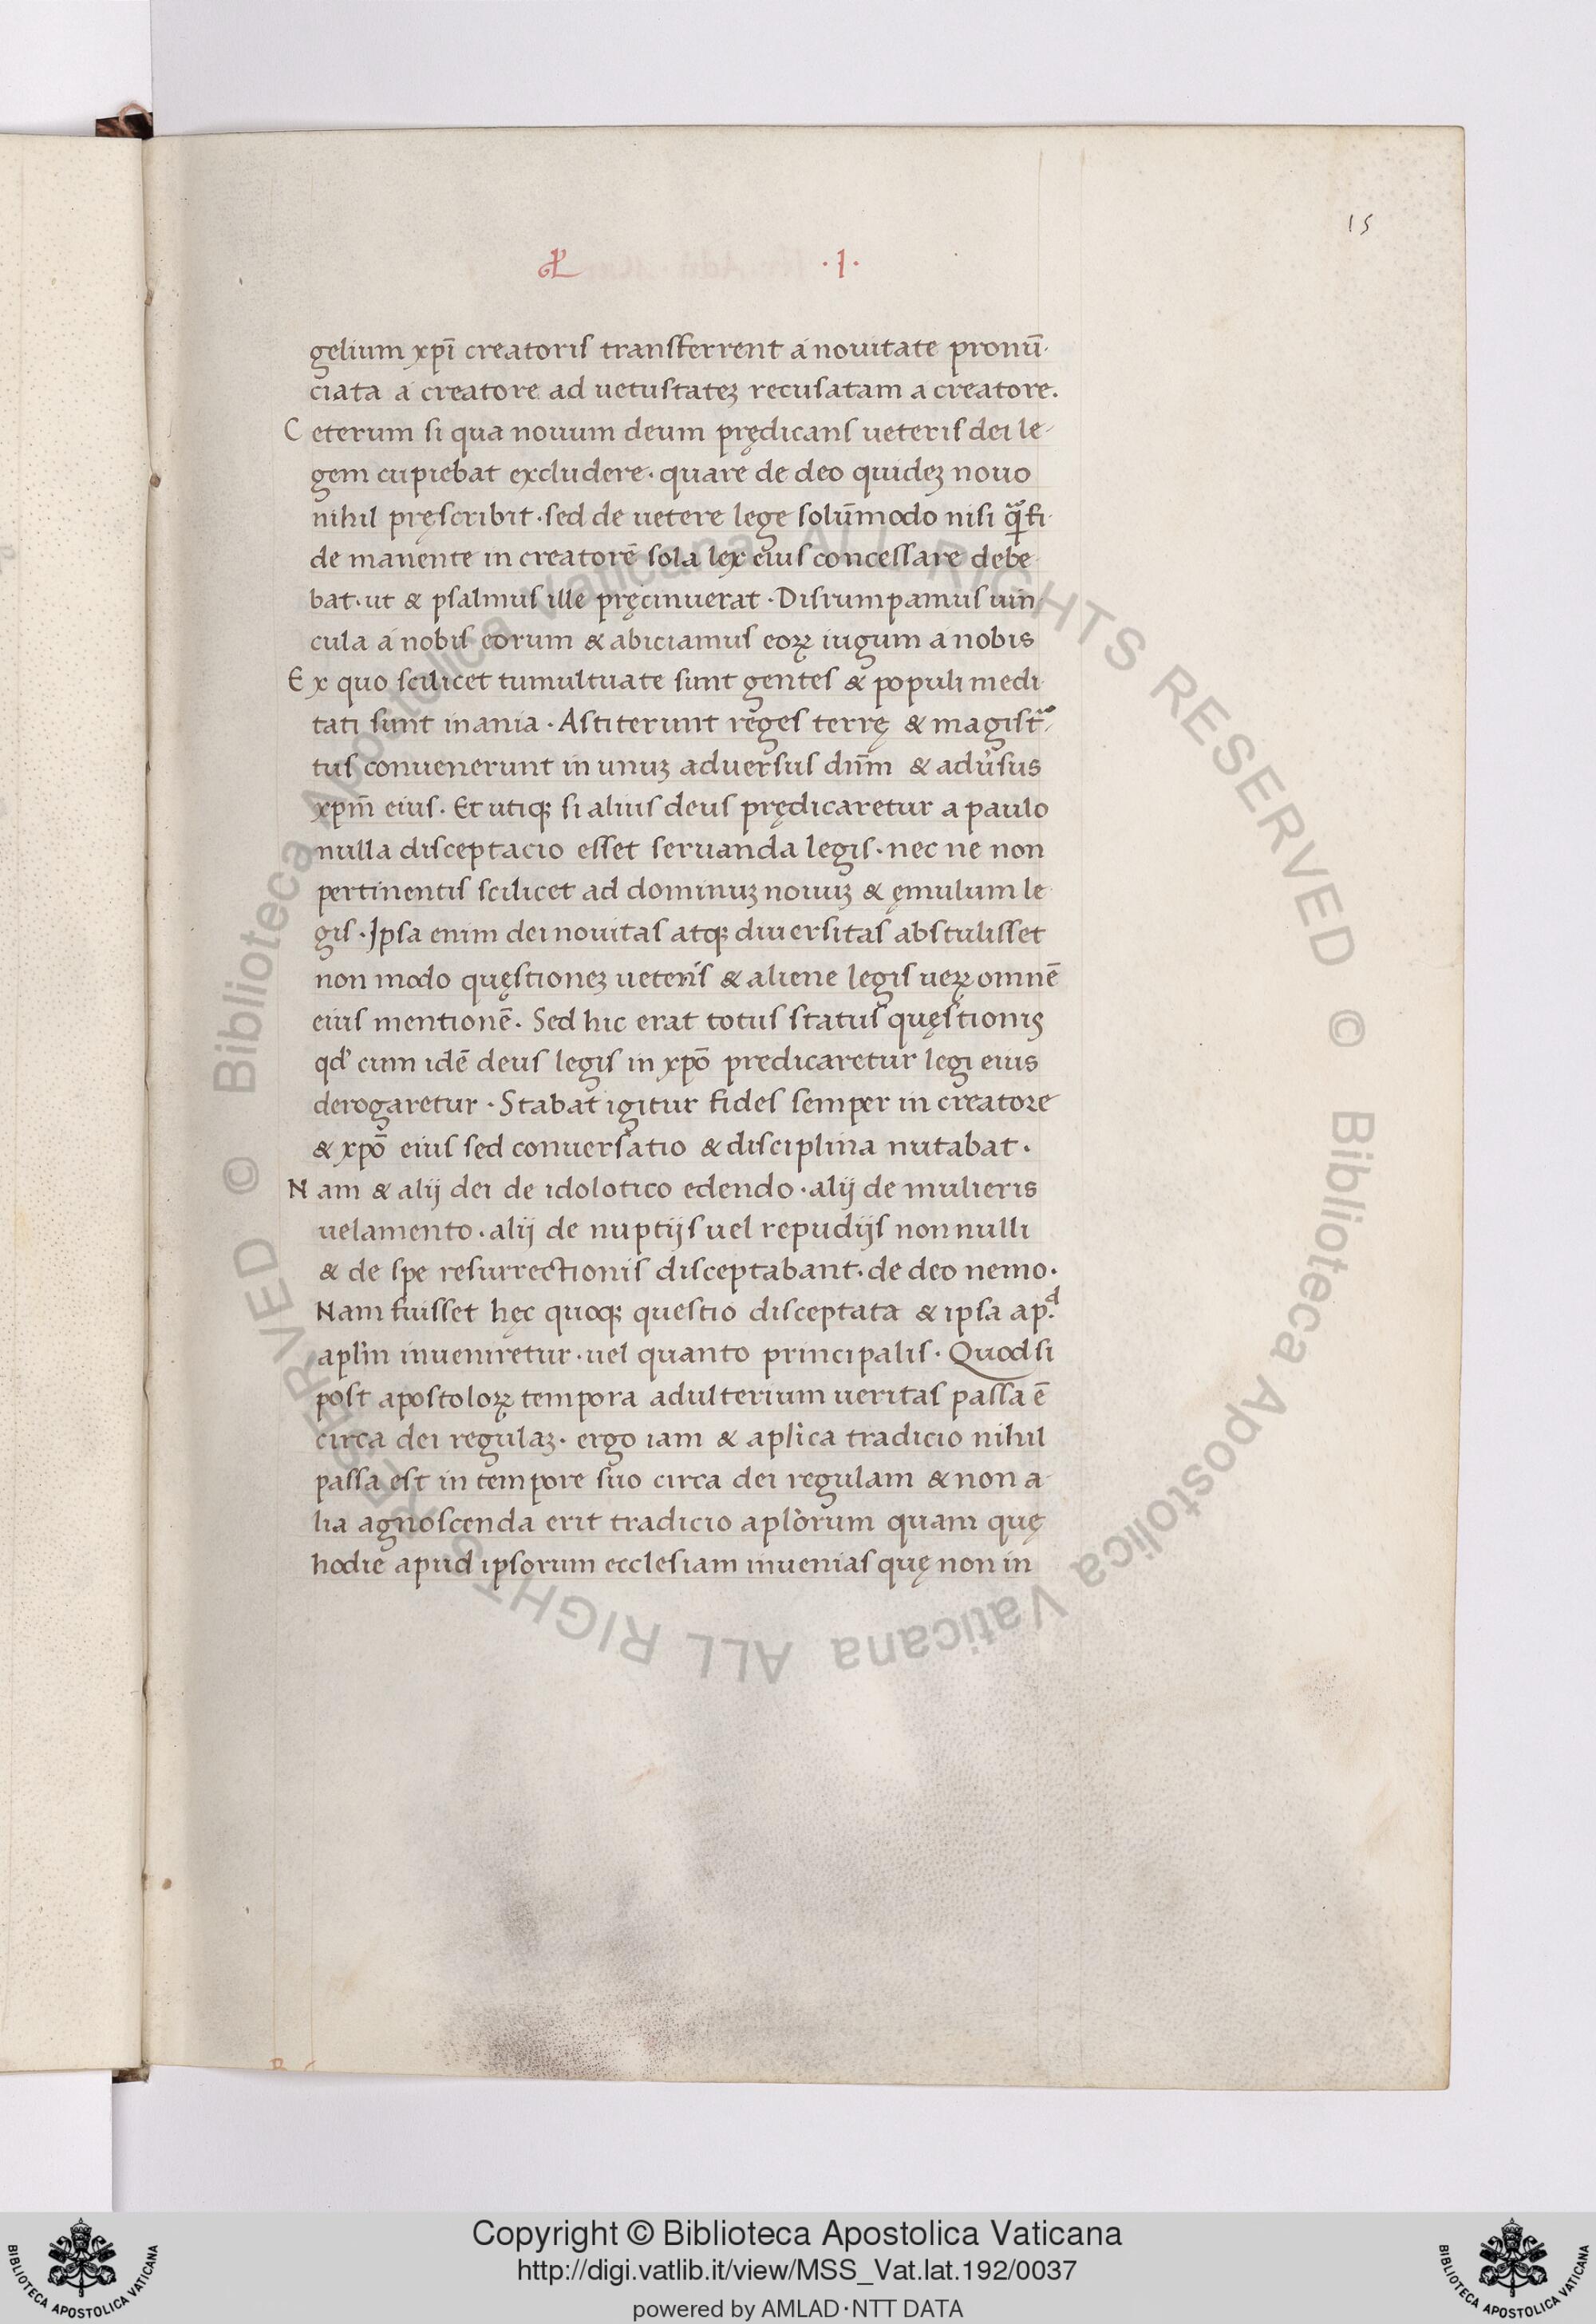 15
·I·
gelium xpī creatoris transferrent a novitate pronū·
ciata a creatore ad vetustateꝫ recusatam a creatore.
Ceterum si qua novum deum prędicans veteris dei le-
gem cupiebat excludere· quare de deo quideꝫ novo
nihil pręscribit· sed de vetere lege solūmodo nisi qᷓ fi·
de manente in creatorē sola lex eius concessare debe
bat· ut & psalmus ille pręcinuerat· Disrumpamus vin
cula a nobis eorum & abiciamus eoꝝ iugum a nobis
Ex quo scilicet tumultuate sunt gentes & populi medi
tati sunt inania· Astiterunt reges terrę & magistᷓ-
tus convenerunt in unuꝫ adversus dñm & adv̓sus
xpm̄ eius· Et utiqꝫ si alius deus prędicaretur a paulo
nulla disceptacio esset servanda legis· nec ne non
pertinentis scilicet ad dominuꝫ novuꝫ & ęmulum le
gis· Ipsa enim dei novitas atqꝫ diversitas abstulisset
non modo quęstioneꝫ veteris & aliene legis veꝝ omnē
eius mentionē· Sed hic erat totus status quęstionis
qd̓ cum idē deus legis in xpō predicaretur legi eius
derogaretur· Stabat igitur fides semper in creatore
& xpō eius sed conversatio & disciplina nutabat·
Nam & alij dei de idolotico edendo· alij de mulieris
velamento· alij de nuptijs vel repudijs non nulli
& de spe resurrectionis disceptabant· de deo nemo·
Nam fuisset hęc quoqꝫ questio disceptata & ipsa ap.ᵈ
aplm̄ inveniretur· vel quanto principalis· Quod si
post apostoloꝝ tempora adulterium veritas passa ē
circa dei regulaꝫ· ergo iam & apl̓ica tradicio nihil
passa est in tempore suo circa dei regulam & non a
lia agnoscenda erit tradicio apl̓orum quam quę
hodie apud ipsorum ecclesiam invenias quę non in
© Biblioteca Apostolica Vaticana ALL RIGHTS RESERVED © Biblioteca Apostolica Vaticana ALL RIGHTS RESERVED
Copyright © Biblioteca Apostolica Vaticana
http://digi.vatlib.it/view/MSS_Vat.lat.192/0037
powered by AMLAD·NTT DATA
BIBLIOTECA APOSTOLICA VATICANA
BIBLIOTECA APOSTOLICA VATICANA